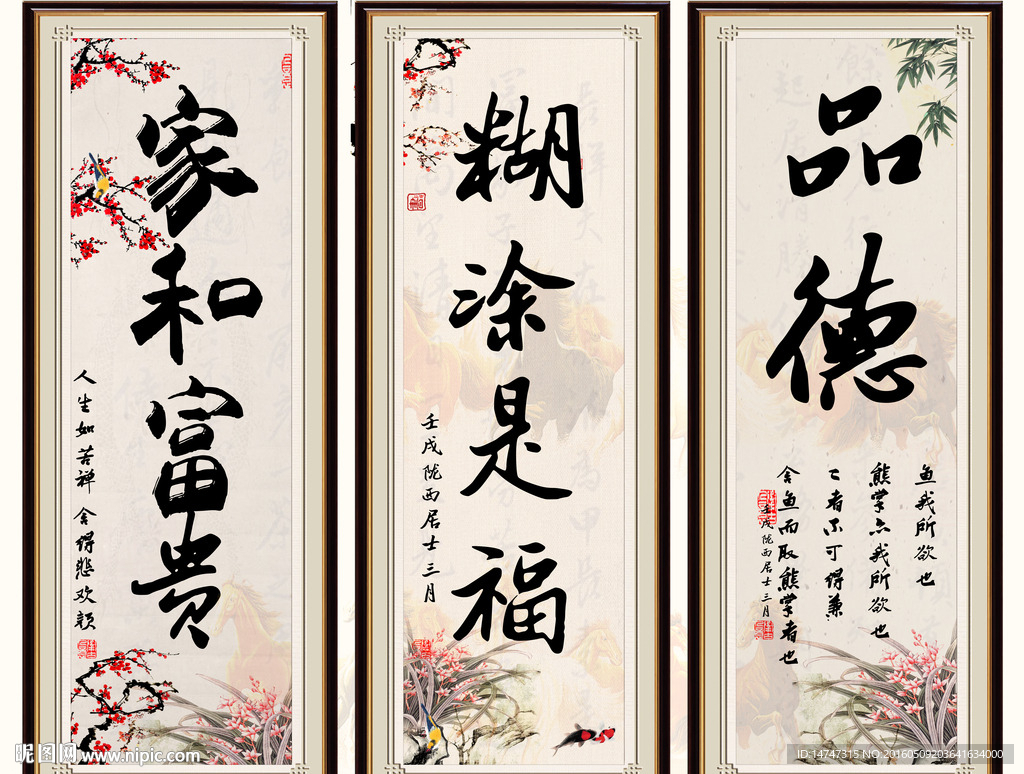 家和富贵
人生如苦禅 舍得悲欢颜
糊涂是福
壬戌陇西居士三月
品德
鱼我所欲也
熊掌亦我所欲也
二者不可得兼
舍鱼而取熊掌者也
壬戌陇西居士三月
昵图网 www.nipic.com
ID:14747315 NO:20160509203641634000